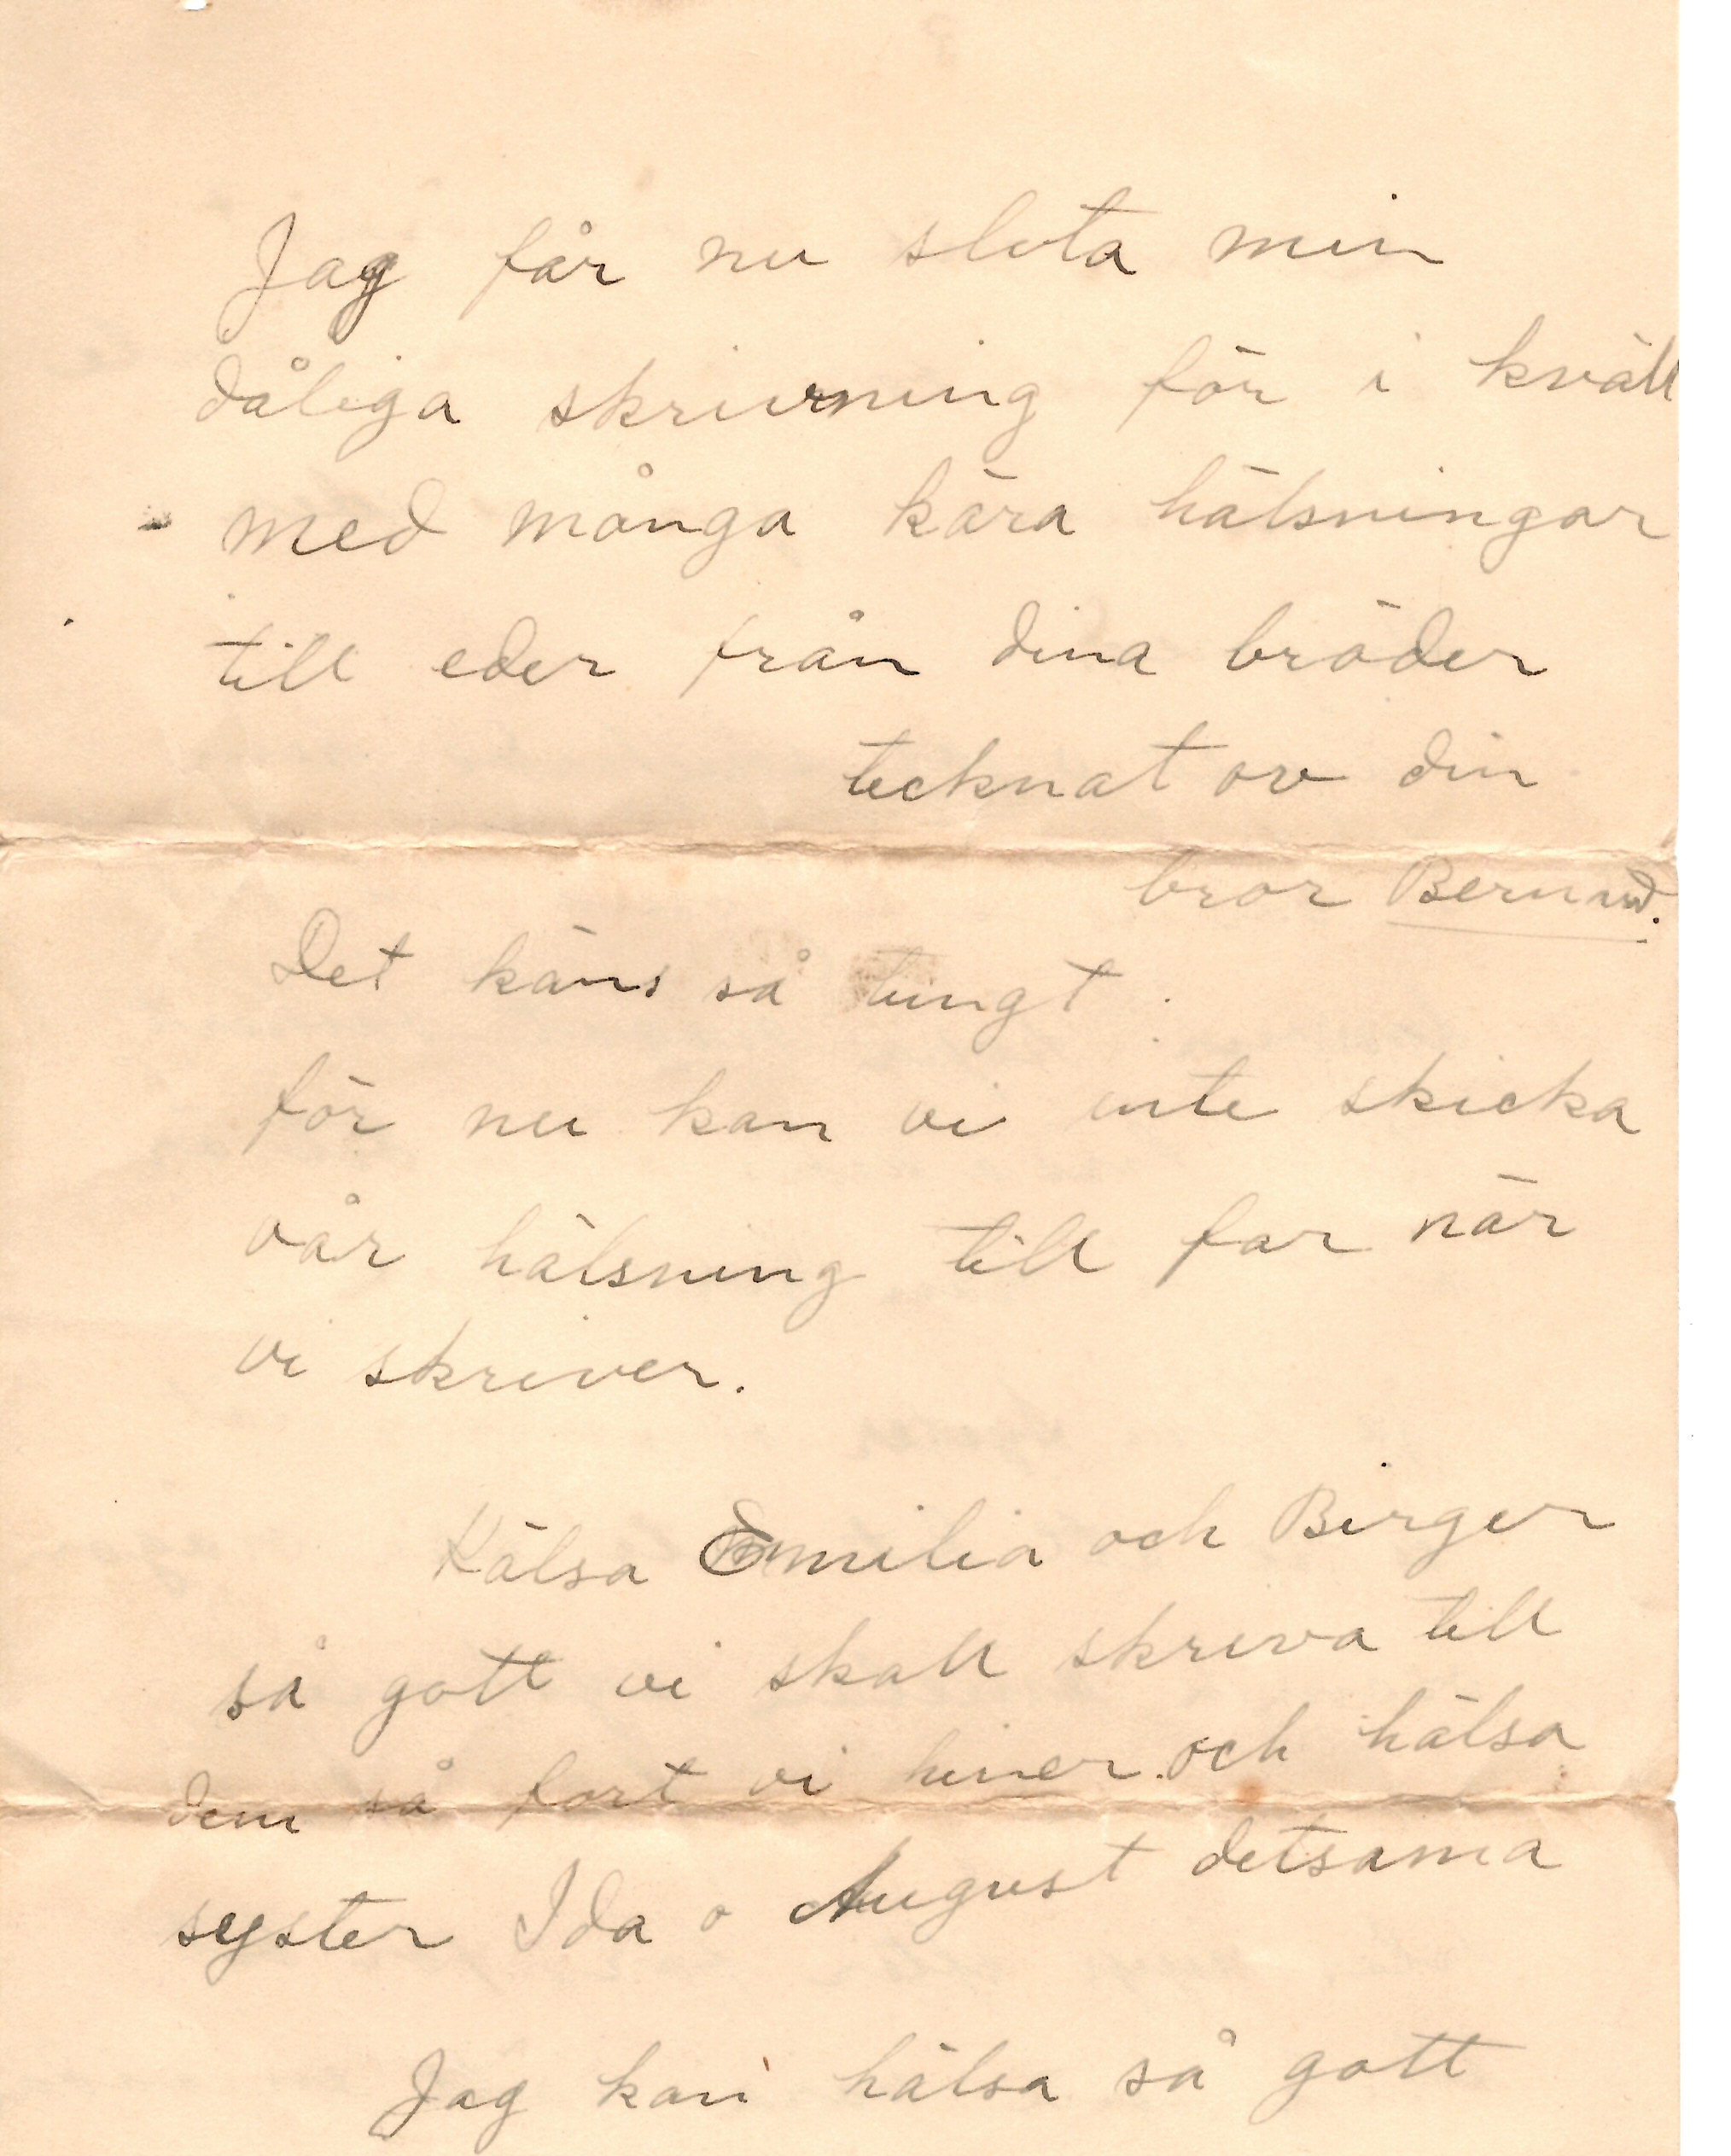 Jag får nu sluta min
dåliga skrivning för i kväll
med många kära hälsningar
till eder från dina bröder
tecknat av din
bror Bernard.
Det käns så tungt
för nu kan vi inte skicka
vår hälsning till far när
vi skriver.
Hälsa Emilia och Birger
så gott vi skall skriva till
dem så fort vi hiner och hälsa
syster Ida o August detsama
Jag kan hälsa så gott